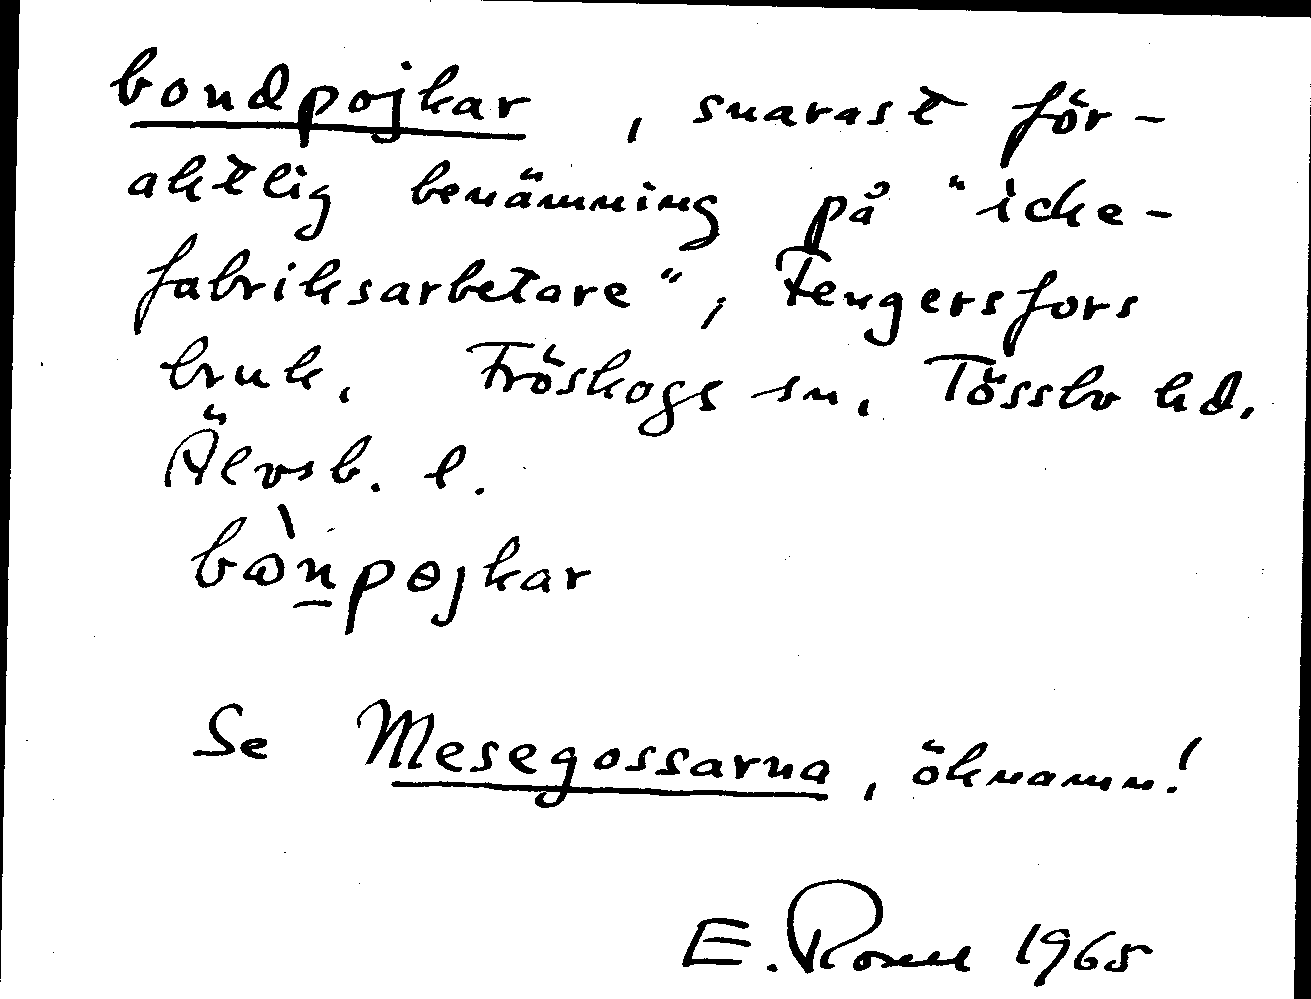 bondpojkar, snarast för-
aktlig benämning på "icke-
fabriksarbetare", Fengersfors
bruk, Fröskogs sn, Tössbo hd.
Älvsb. l.
bò̱npojkar
Se Mesegossarna, öknamn!
E. 1965